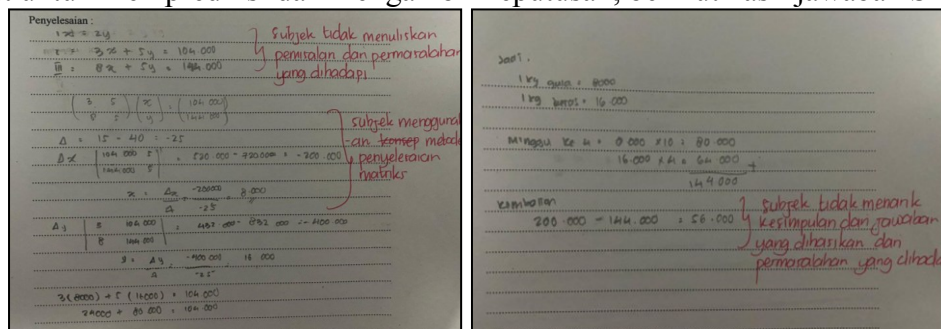 Penyelesaian :
1x = 2y
3x + 5y = 104.000
8x + 5y = 144.000
( 3 5 ) ( x ) = ( 104.000 )
( 8 5 ) ( y ) ( 144.000 )
Δ = 15 - 40 = -25
Δx | 104.000 5 | = 520.000 - 720.000 = -200.000
| 144.000 5 |
x = Δx = -200000 = 8.000
Δ -25
Δy | 3 104.000 | = 432.000 - 832.000 = -400.000
| 8 144.000 |
y = Δy = -400.000 = 16.000
Δ -25
3(8000) + 5(16000) = 104.000
24000 + 80.000 = 104.000
subjek tidak menuliskan
pemisalan dan permasalahan
yang dihadapi
subjek mengguna
-an konsep metode
penyelesaian
matriks
Jadi.
1 kg gula = 8000
1 kg beras = 16.000
Minggu ke 4 = 8.000 x 10 = 80.000
16.000 x 4 = 64.000 +
144.000
kembalian
200.000 - 144.000 = 56.000
subjek tidak menarik
kesimpulan dan jawaban
yang dihasilkan dan
permasalahan yang dihada